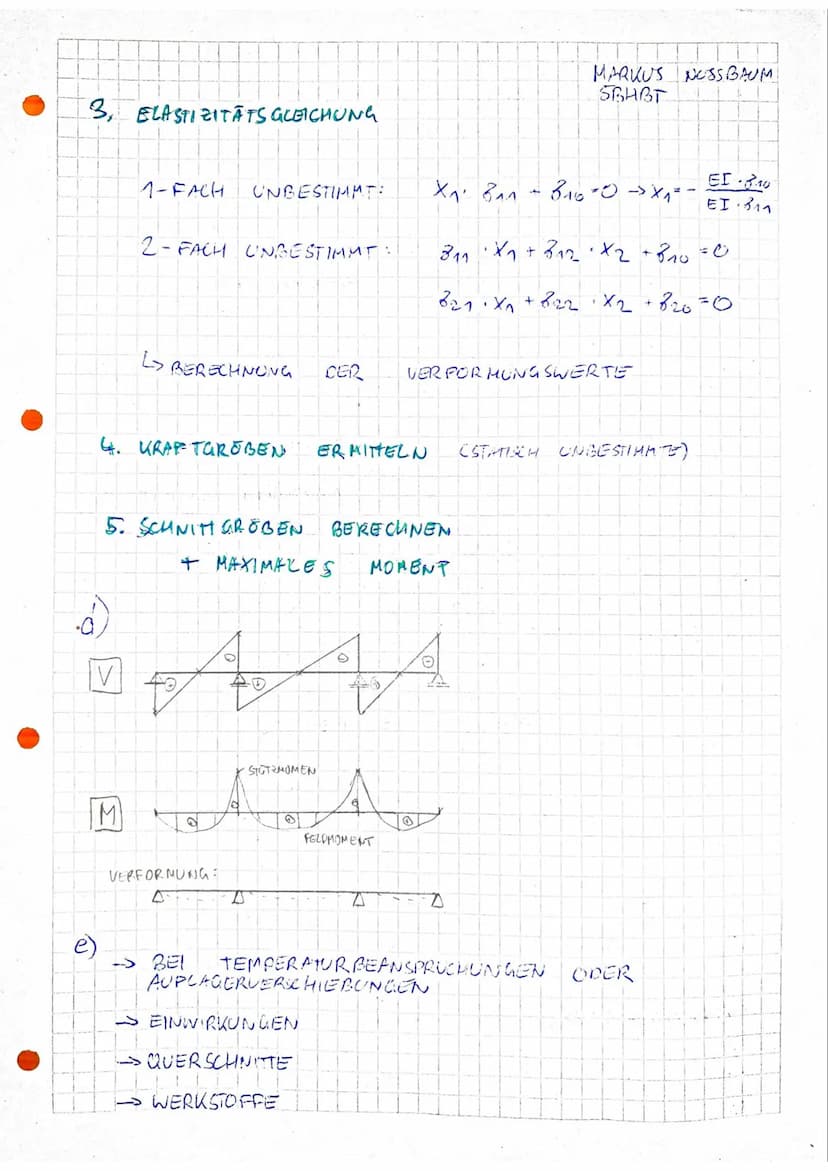 MARKUS NUSSBAUM
5BHBT
3. ELASTIZITÄTSGLEICHUNG
1-FACH UNBESTIMMT: X₁ · δ₁₁ + δ₁₀ = 0 → X₁ = - EI · δ₁₀ / EI · δ₁₁
2-FACH UNBESTIMMT: δ₁₁ · X₁ + δ₁₂ · X₂ + δ₁₀ = 0
δ₂₁ · X₁ + δ₂₂ · X₂ + δ₂₀ = 0
↳ BERECHNUNG DER VERFORMUNGSWERTE
4. KRAFTGRÖßEN ERMITTELN (STATISCH UNBESTIMMTE)
5. SCHNITTGRÖßEN BERECHNEN
+ MAXIMALES MOMENT
d)
V
STÜTZMOMEN
M
FELDMOMENT
VERFORMUNG:
e)
→ BEI TEMPERATURBEANSPRUCHUNGEN ODER
AUFLAGERVERSCHIEBUNGEN
→ EINWIRKUNGEN
→ QUERSCHNITTE
→ WERKSTOFFE